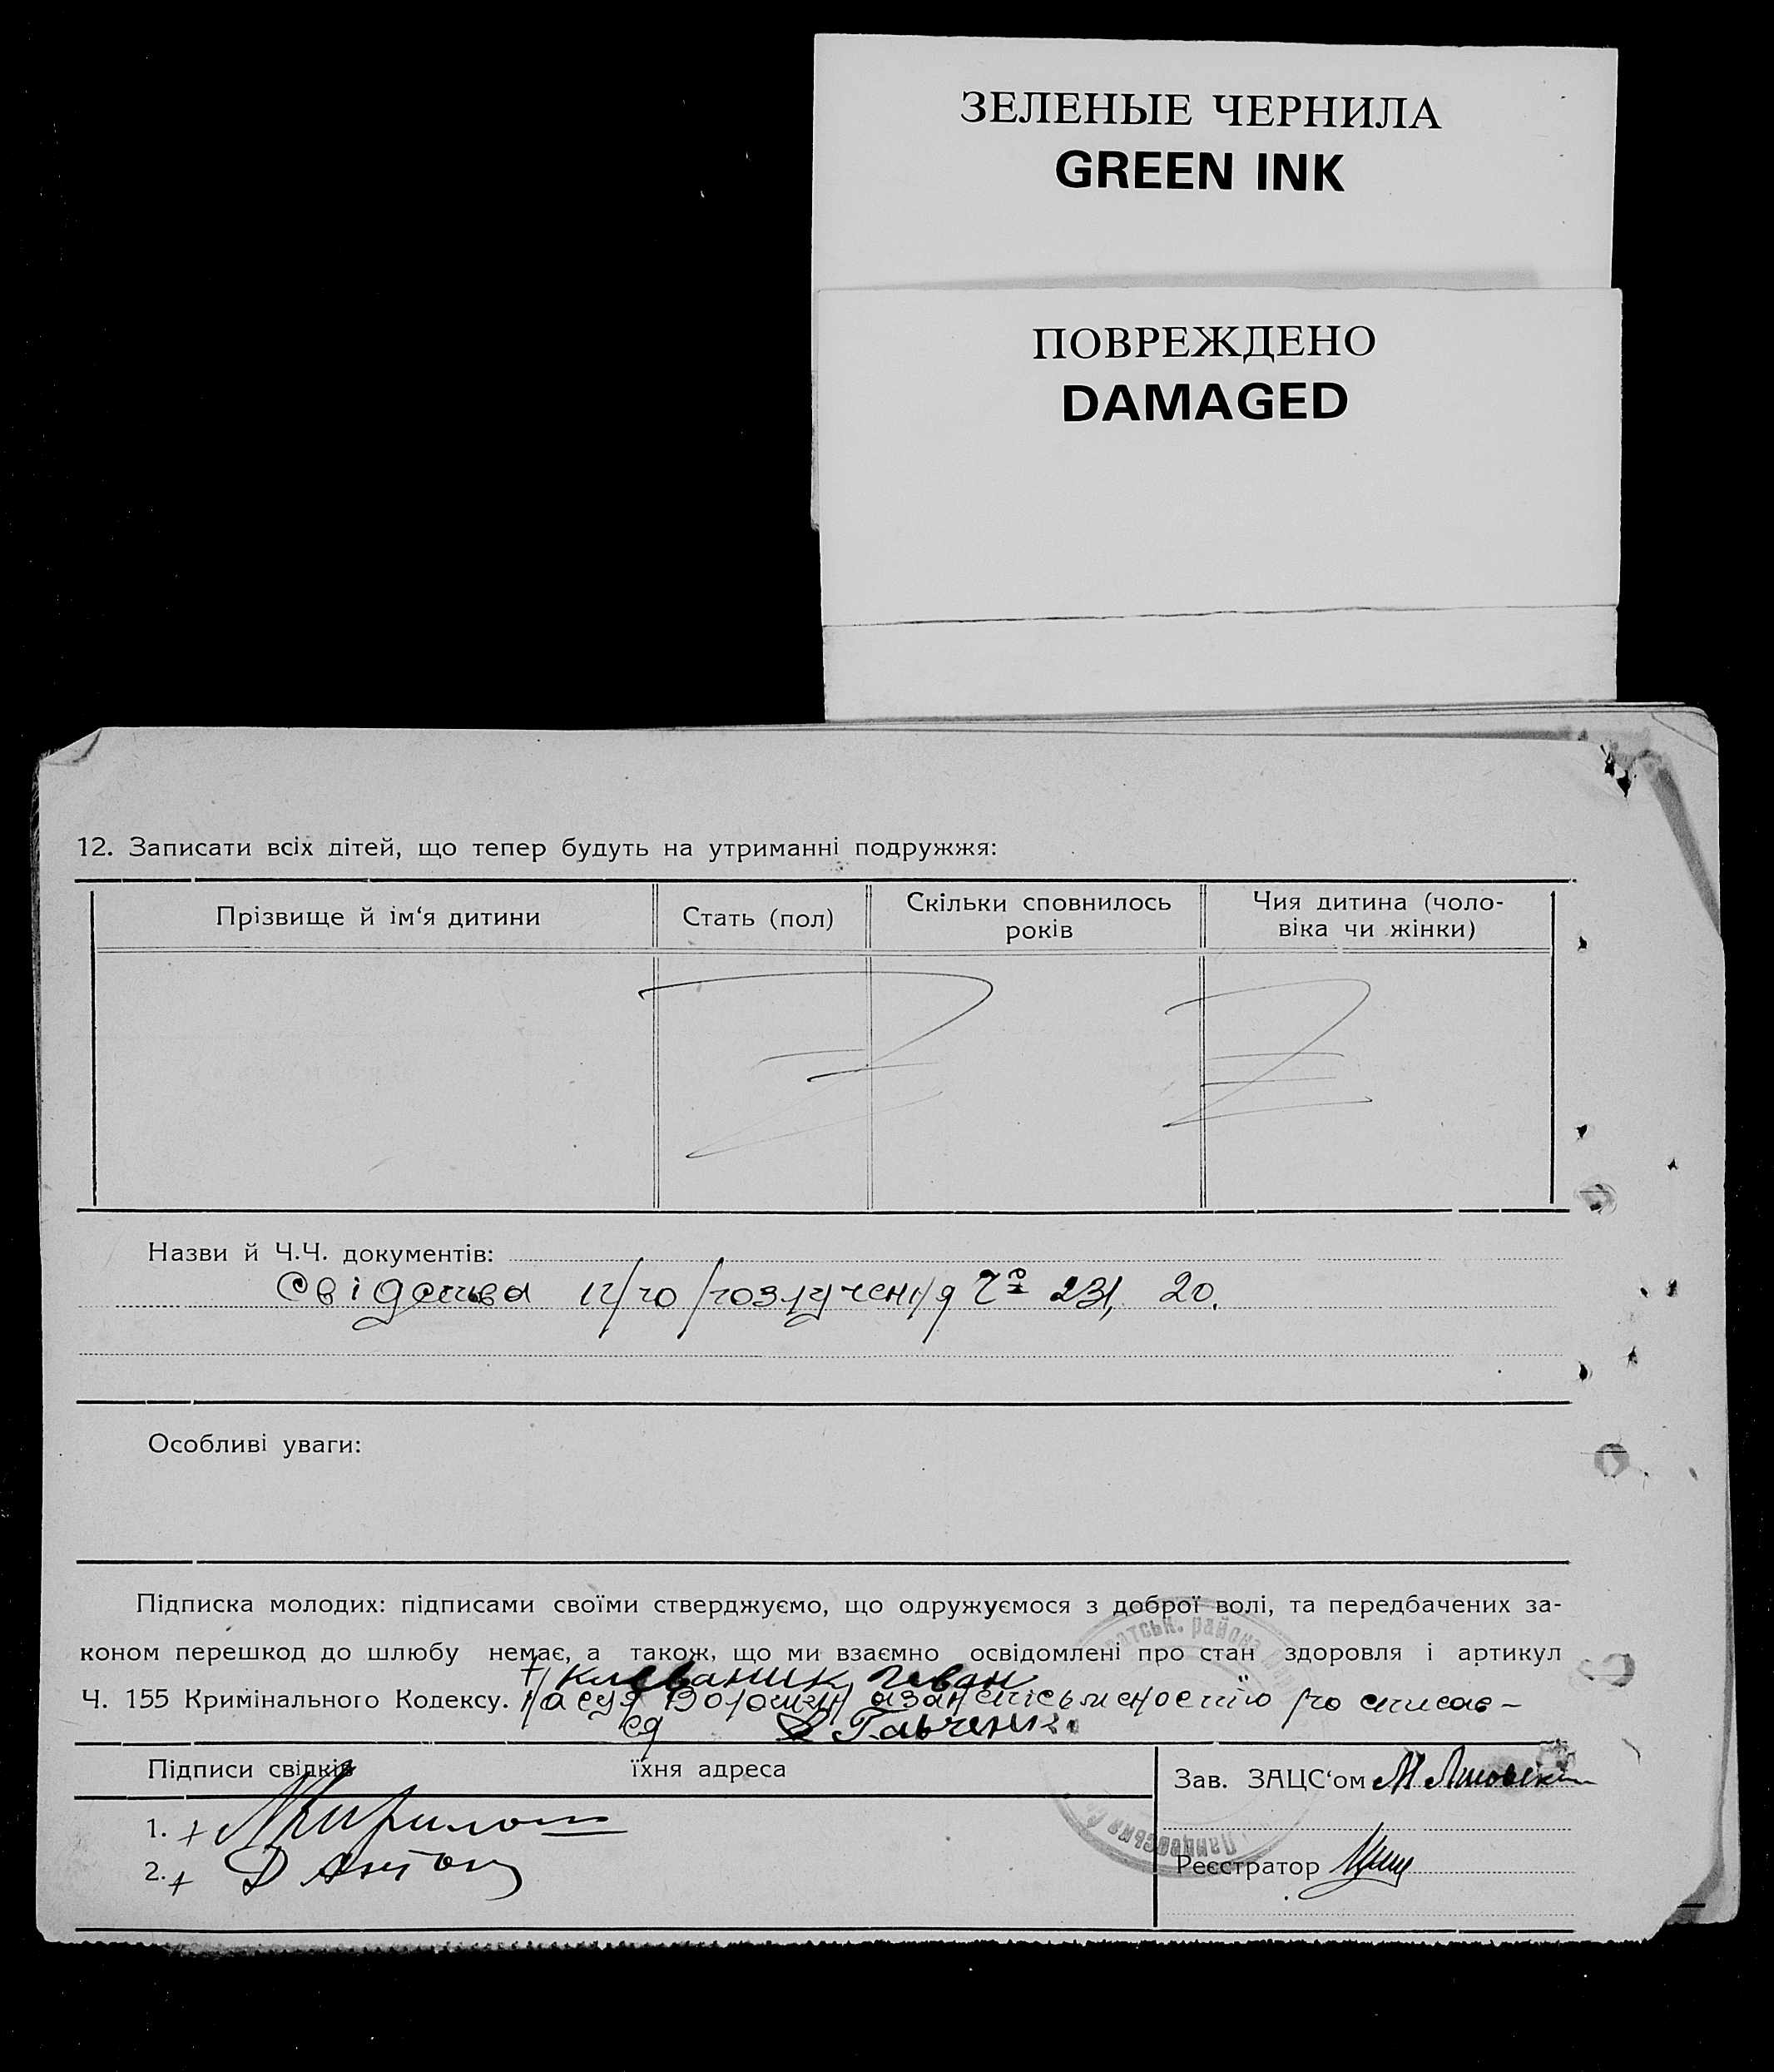 ЗЕЛЕНЫЕ ЧЕРНИЛА
GREEN INK
ПОВРЕЖДЕНО
DAMAGED
12. Записати всіх дітей, що тепер будуть на утриманні подружжя:
Прізвище й ім‘я дитини
Стать (пол)
Скільки сповнилось
років
Чия дитина (чоло-
віка чи жінки)
Назви й Ч.Ч. документів:
Свідоства про розлучення 231, 20.
Особливі уваги:
Підписка молодих: підписами своїми стверджуємо, що одружуємося з доброї волі, та передбачених за-
коном перешкод до шлюбу немає, а також, що ми взаємно освідомлені про стан здоровля і артикул
Ч. 155 Кримінального Кодексу.
Підписи свідків їхня адреса
Зав. ЗАЦС‘ом
1.
2.
Реєстратор